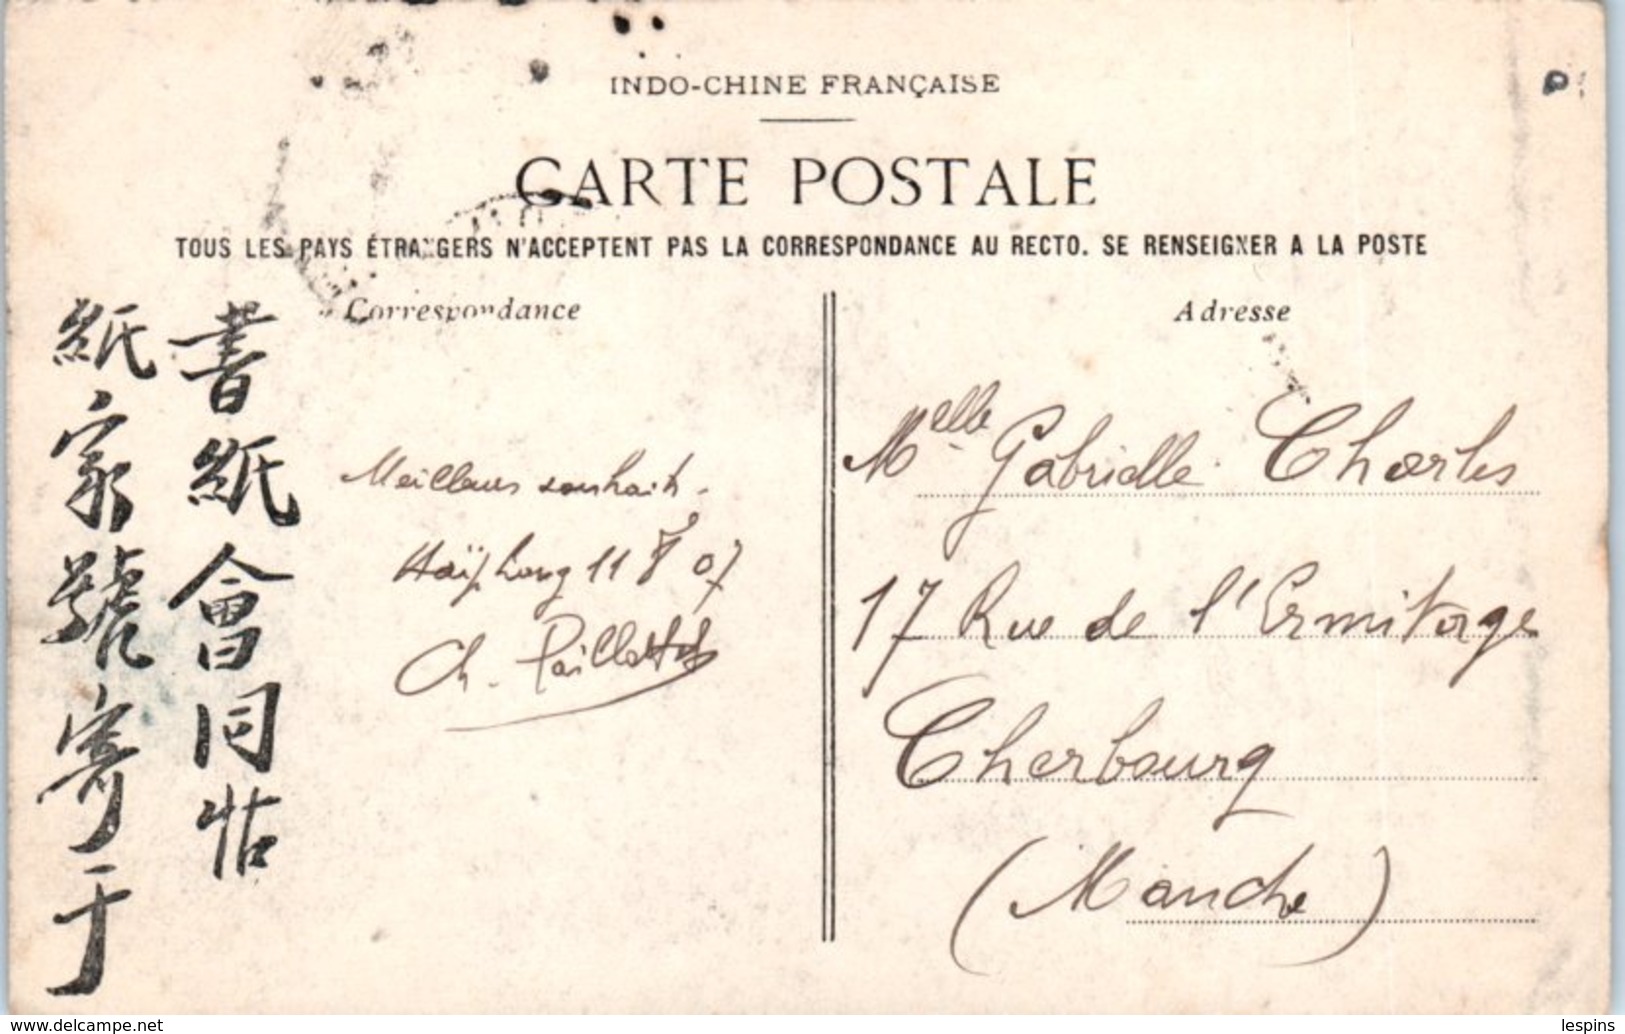 INDO-CHINE FRANÇAISE
CARTE POSTALE
TOUS LES PAYS ÉTRANGERS N'ACCEPTENT PAS LA CORRESPONDANCE AU RECTO. SE RENSEIGNER A LA POSTE
Correspondance
Adresse
書紙會同帖
紙家號寄于
Meilleurs souhaits.
Haïphong 11 8 07
Ch.
Melle Gabrielle Charles
17 Rue de l'Ermitage
Cherbourg
(Manche)
www.delcampe.net
lespins